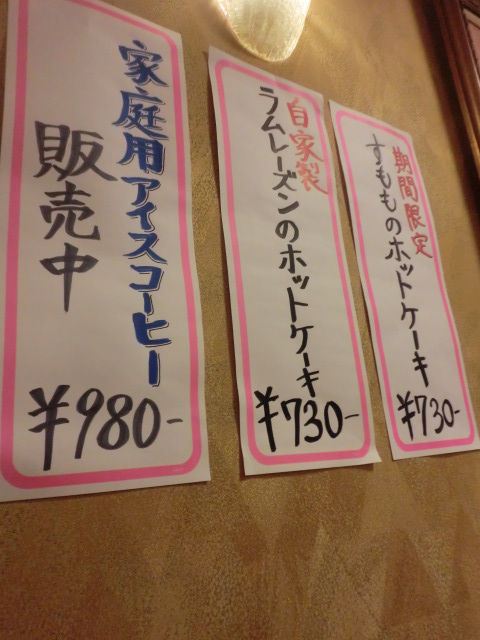 期間限定
すもものホットケーキ
¥730-
自家製
ラムレーズンのホットケーキ
¥730-
家庭用アイスコーヒー
販売中
¥980-